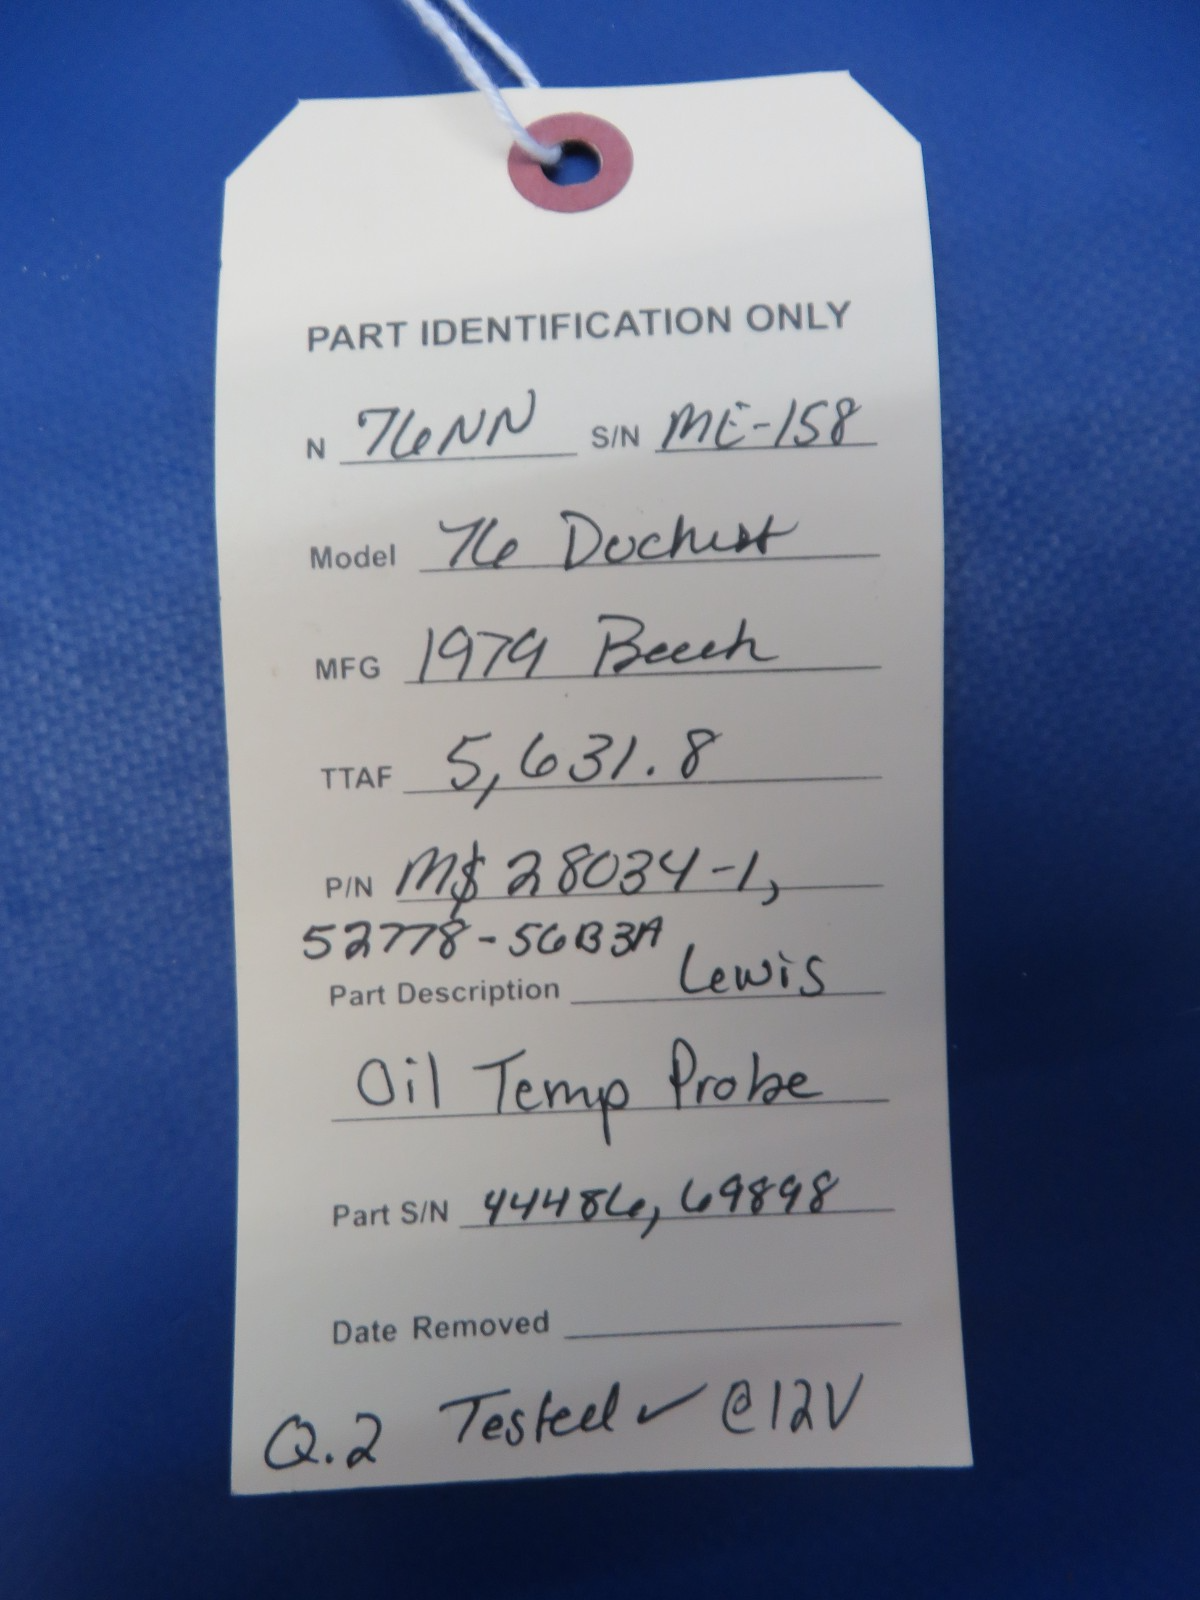 PART IDENTIFICATION ONLY
N 76NN S/N ME-158
Model 76 Duchess
MFG 1979 Beech
TTAF 5,631.8
P/N M$ 28034-1,
52778-56B3A
Part Description Lewis
Oil Temp Probe
Part S/N 44486, 69898
Date Removed
Q.2 Tested ✓ @12V